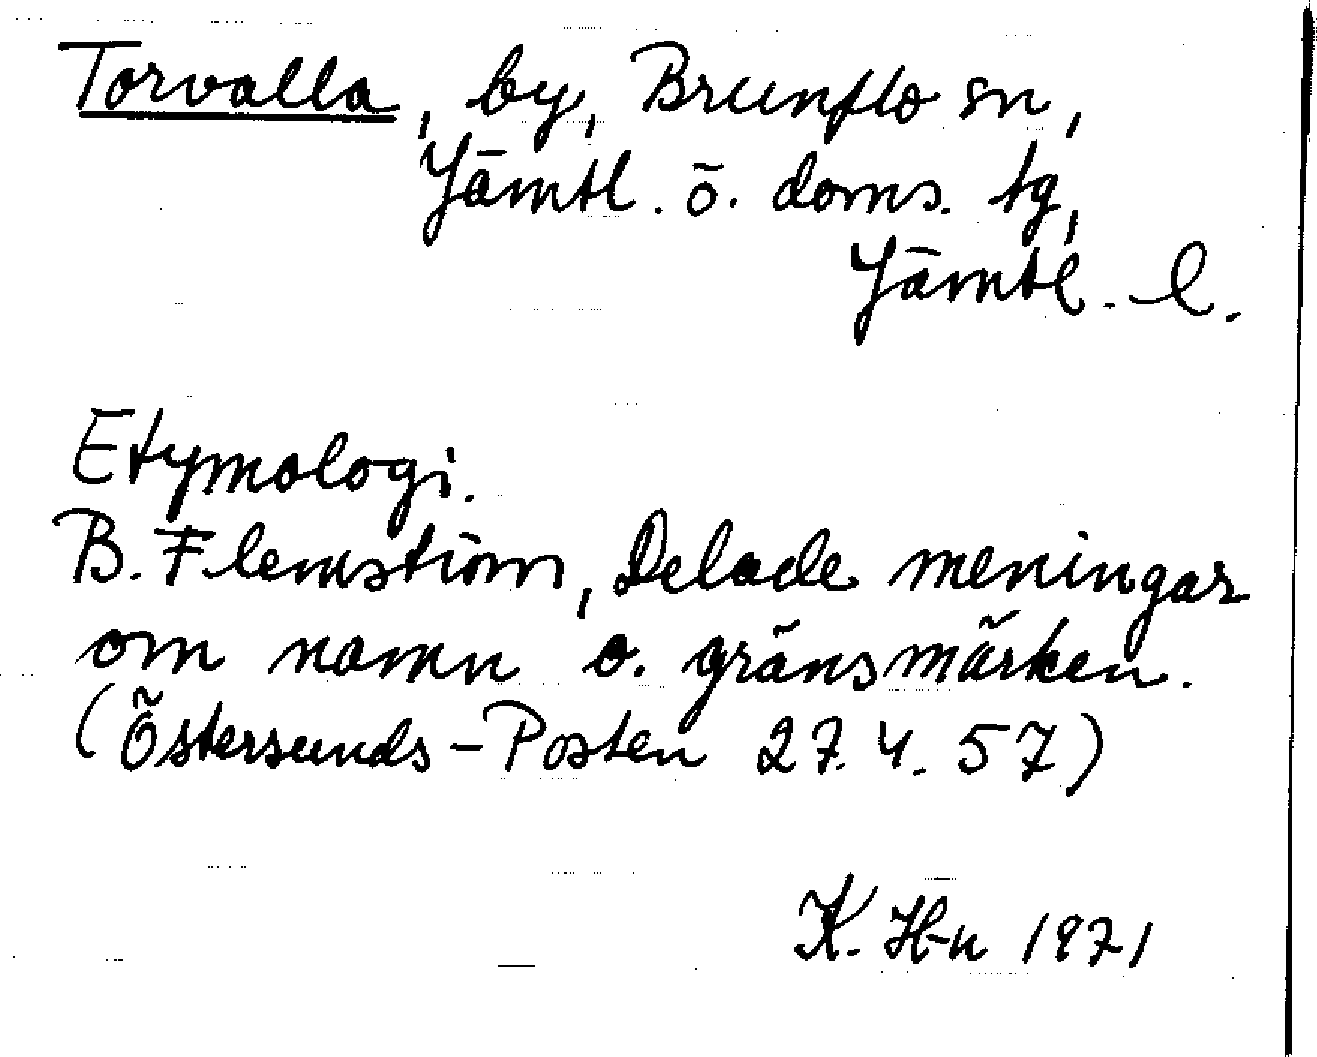 Torvalla, by, Brunflo sn,
Jämtl. ö. doms. tg,
Jämtl. l.
Etymologi.
B. Flemström, Delade meningar
om namn o. gränsmärken.
(Östersunds-Posten 27.4.57)
K. H-n 1971